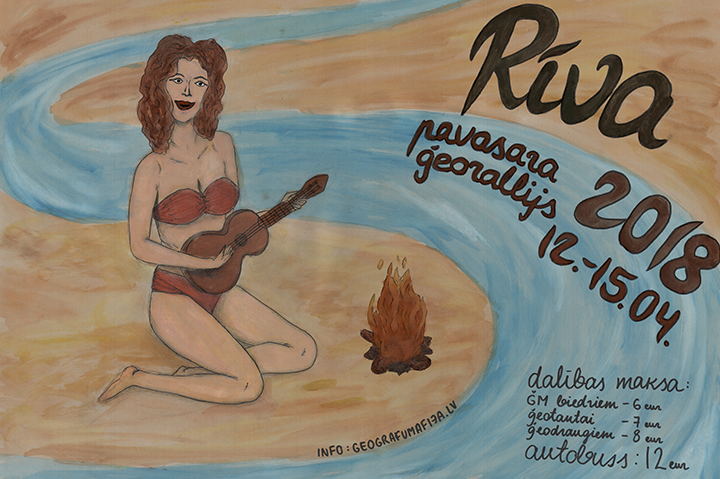 Rīva
pavasara
ģeorallijs
2018
12.-15.04.
dalības maksa:
ĢM biedriem - 6 eur
ģeotantai - 7 eur
ģeodraugiem - 8 eur
autobuss: 12 eur
INFO: GEOGRAFUMAFIJA.LV